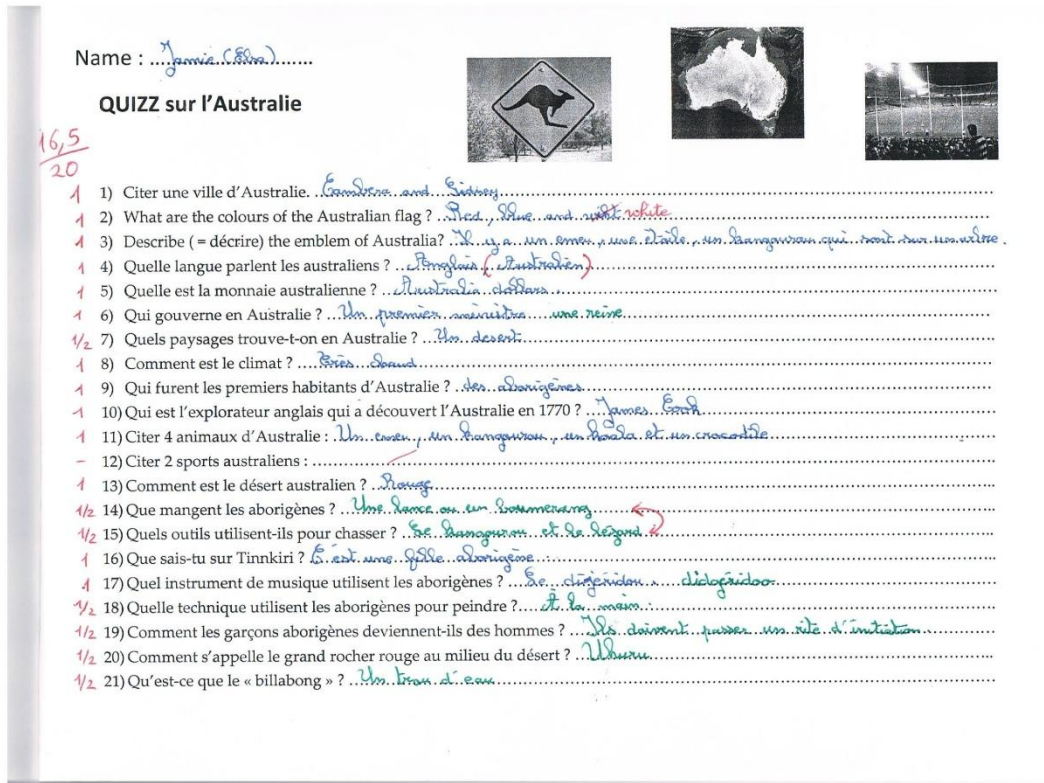 Name : ....Jamie (Elsa).......
QUIZZ sur l'Australie
16,5
20
1 1) Citer une ville d'Australie. Camberra and Sidney
1 2) What are the colours of the Australian flag ? Red, blue and white
1 3) Describe ( = décrire) the emblem of Australia? Il y a un emeu, une étoile, un kangourou qui sont sur un arbre.
1 4) Quelle langue parlent les australiens ? Anglais (Australien)
1 5) Quelle est la monnaie australienne ? Australia dollars.
1 6) Qui gouverne en Australie ? Un premier ministre une reine
1/2 7) Quels paysages trouve-t-on en Australie ? Un desert
1 8) Comment est le climat ? Très chaud
1 9) Qui furent les premiers habitants d'Australie ? des aborigènes
1 10) Qui est l'explorateur anglais qui a découvert l'Australie en 1770 ? James Cook
1 11) Citer 4 animaux d'Australie : Un emeu, un kangourou, un koala et un crocodile
– 12) Citer 2 sports australiens :
1 13) Comment est le désert australien ? Rouge
1/2 14) Que mangent les aborigènes ? Une lance ou un boomerang
1/2 15) Quels outils utilisent-ils pour chasser ? Le kangourou et le lézard
1 16) Que sais-tu sur Tinnkiri ? C'est une fille aborigène.
1 17) Quel instrument de musique utilisent les aborigènes ? Le dijéridou. didgéridoo
1/2 18) Quelle technique utilisent les aborigènes pour peindre ? À la main.
1/2 19) Comment les garçons aborigènes deviennent-ils des hommes ? Ils doivent passer un rite d'initiation.
1/2 20) Comment s'appelle le grand rocher rouge au milieu du désert ? Uluru
1/2 21) Qu'est-ce que le « billabong » ? Un trou d'eau